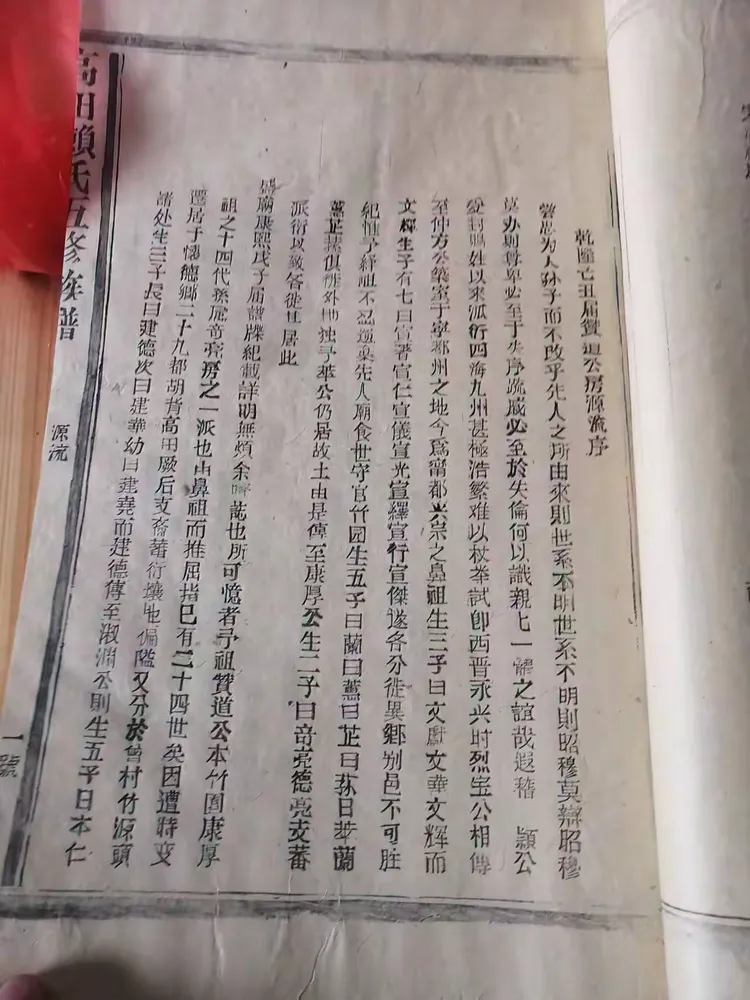 乾隆亡丑届贊道公房源流序
嘗思为人孙子而不改乎先人之所由來則世系不明世系不明則昭穆莫辯昭穆
莫办則尊卑必至于失序疏戚必至於失倫何以識親七一體之誼哉遐稽 頴公
受封賜姓以來派衍四海九州甚極浩繁难以枚举試即西晋永兴时烈宝公相傳
至仲方公築室于寧都州之地今爲甯都兴宗之鼻祖生三子曰文獻文華文辉而
文輝生子有七曰宣著宣仁宣儀宣光宣繹宣行宣傑遂各分徙異鄉别邑不可胜
紀惟予紓祖不忍遗棄先人廟食世守官竹园生五子曰蘭曰蕙曰芷曰荪曰華蘭
蕙芷荪俱徙外地独予華公仍居故土由是傳至康厚公生二子曰奇亮德亮支蕃
派衍以致各徙其居此
盛廟康熙戊子届譜牒紀載詳明無煩余贅誌也所可憶者予祖贊道公本竹園康厚
祖之十四代孫属奇亮房之一派也由鼻祖而推屈指已有二十四世矣因遭時变
遷居于懷德鄉二十九都胡背高田厥后支裔蕃衍壤地偏隘又分於曾村竹源頭
諸处生三子長曰建德次曰建華幼曰建堯而建德傳至淑淵公則生五子日本仁
高田賴氏五修族譜
源流
一號